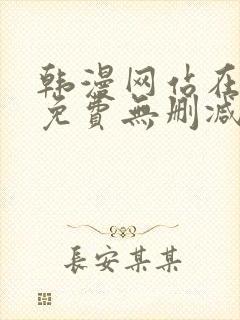 韩漫网佔在
免費無删减
長安某某